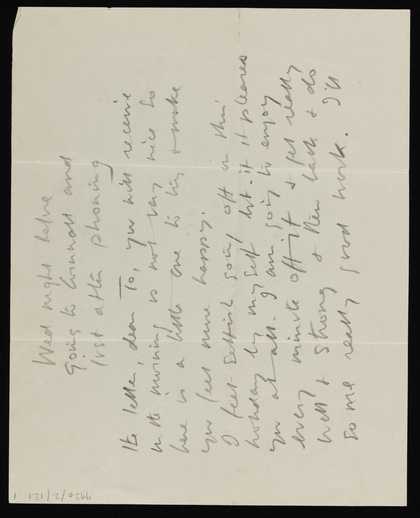 Wed night before
going to Cornwall and
just after phoning
The letter, dear To, you will receive
in the morning is not very nice so
here is a little one to try & make
you feel more happy.
I feel selfish going off on this
holiday by myself but if it pleases
you at all I am going to enjoy
every minute off it & get really
well & strong & then back & do
some really good work. I'll
9920/2/121 1